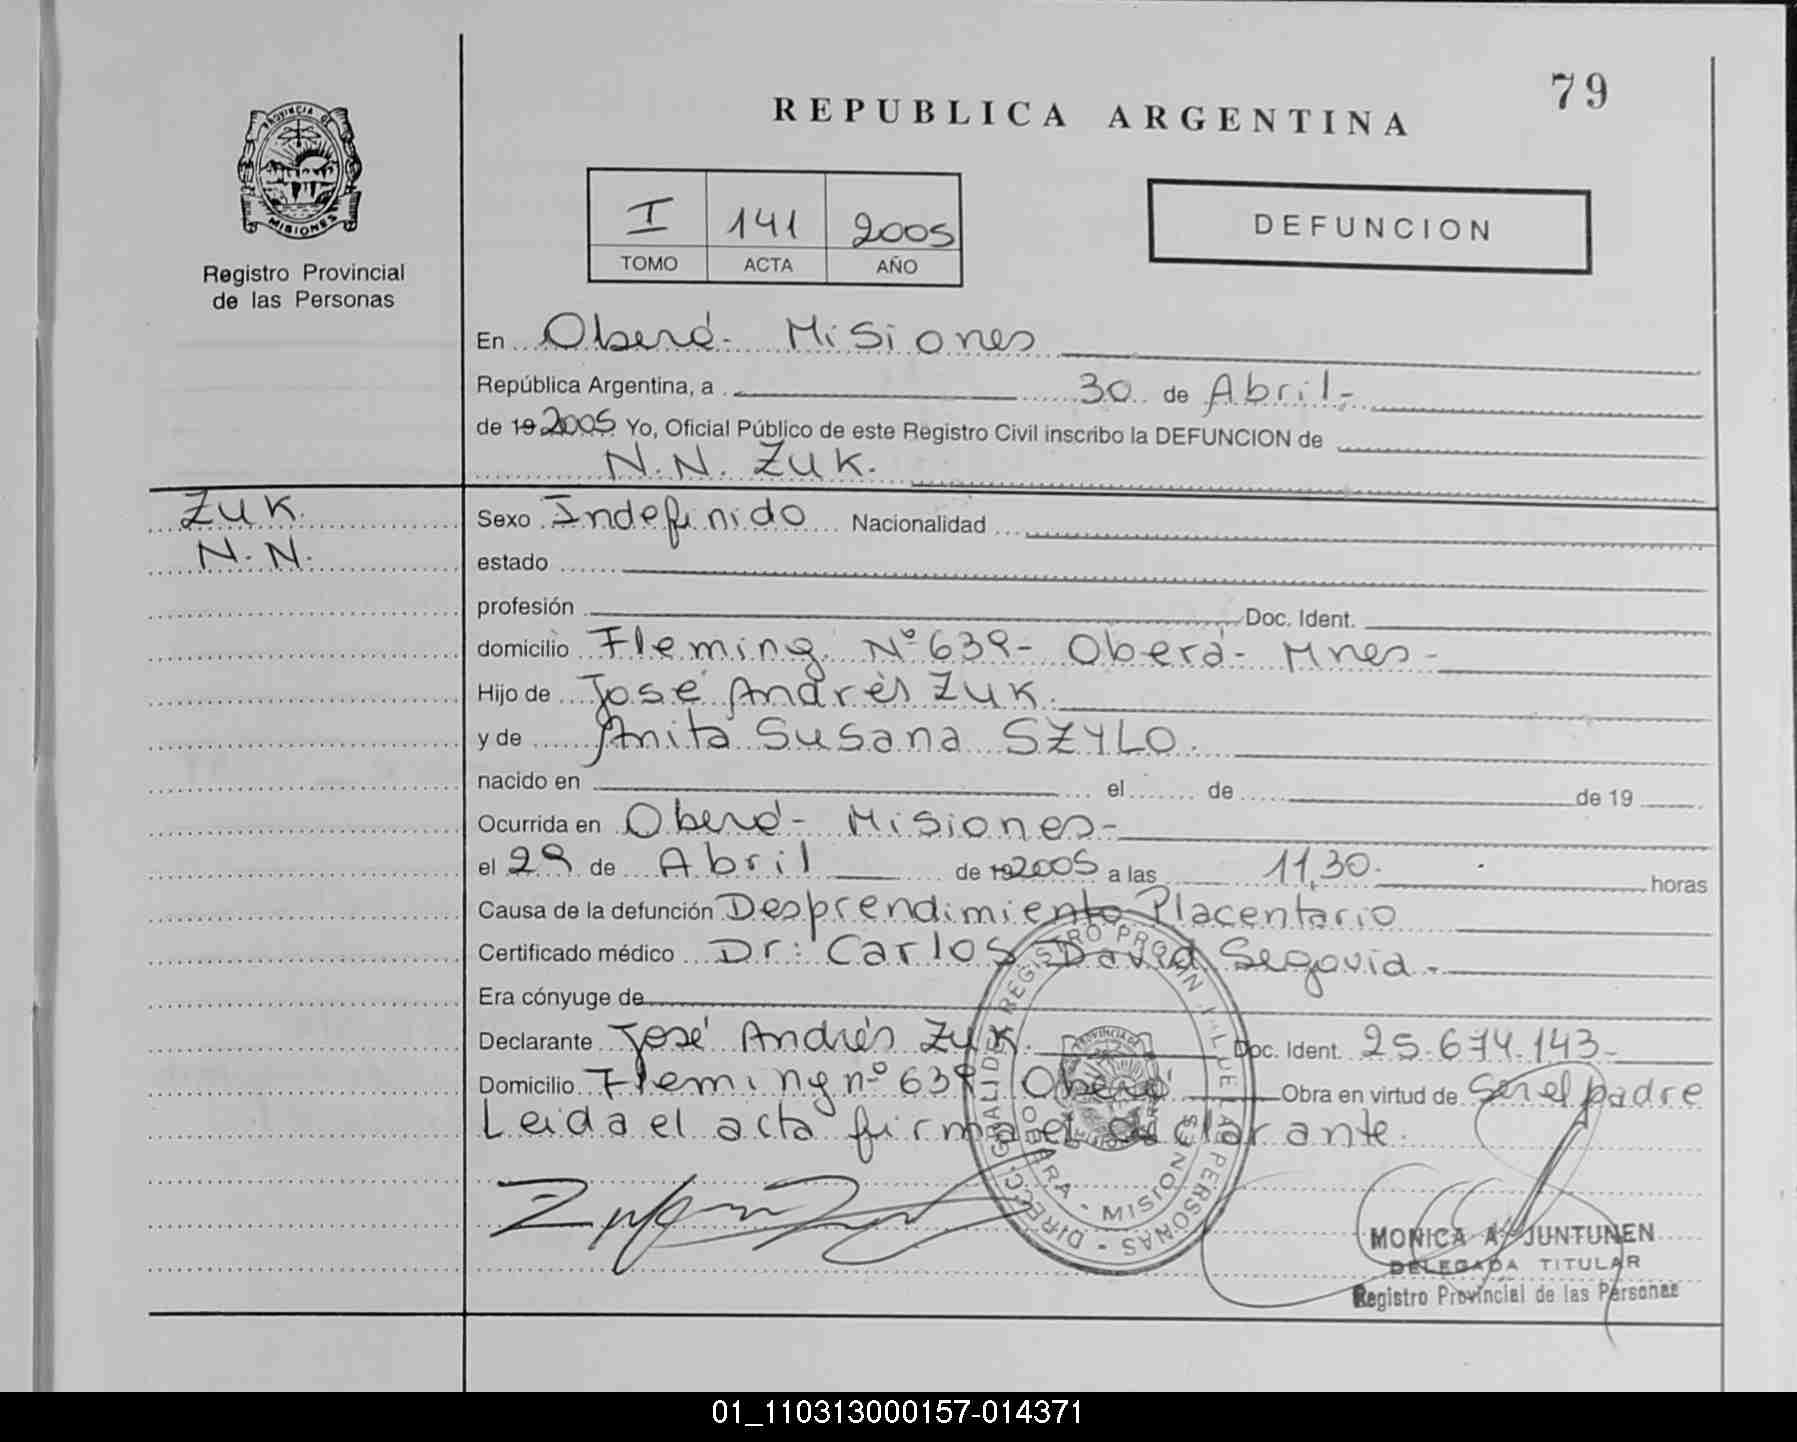 79
REPUBLICA ARGENTINA
PROVINCIA DE
MISIONES
Registro Provincial
de las Personas
I 141 2005
TOMO ACTA AÑO
DEFUNCION
En Oberá - Misiones
República Argentina, a 30 de Abril.-
de 19 2005 Yo, Oficial Público de este Registro Civil inscribo la DEFUNCION de
N.N. ZUK.
ZUK
N.N.
Sexo Indefinido Nacionalidad
estado
profesión Doc. Ident.
domicilio Fleming Nº 639- Oberá- Mnes-
Hijo de José Andrés ZUK.
y de Anita Susana SZYLO.
nacido en el de de 19
Ocurrida en Oberá- Misiones-
el 29 de Abril de 19 2005 a las 11,30. horas
Causa de la defunción Desprendimiento Placentario
Certificado médico Dr: Carlos David Segovia.-
Era cónyuge de
Declarante José Andrés Zuk. Doc. Ident. 25.674.143-
Domicilio Fleming nº 639 Oberá Obra en virtud de Ser el padre
Leida el acta firma el declarante.
OBERA - MISIONES
MONICA A. JUNTUNEN
DELEGADA TITULAR
Registro Provincial de las Personas
01_110313000157-014371